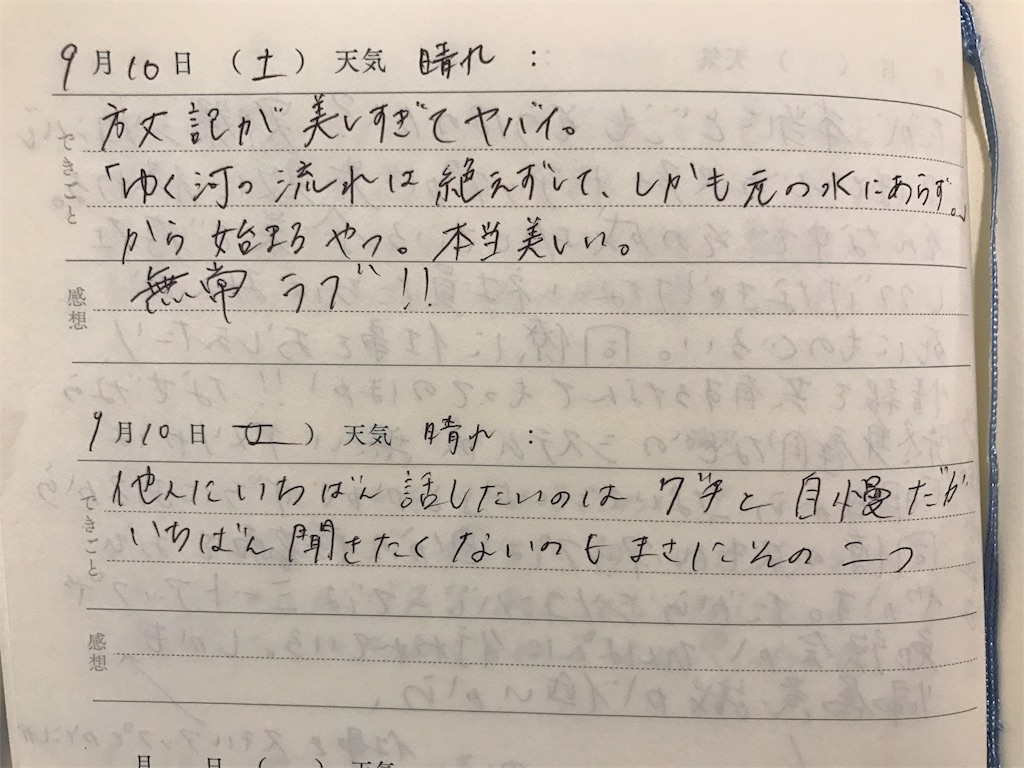 9月10日 (土) 天気 晴れ :
できごと
方丈記が美しすぎてヤバイ。
「ゆく河の流れは絶えずして、しかも元の水にあらず。」
から始まるやつ。本当美しい。
感想
無常ラブ!!
9月10日 土) 天気 晴れ :
できごと
他人にいちばん話したいのはグチと自慢だが
いちばん聞きたくないのもまさにその二つ
感想
月 日 ( ) 天気